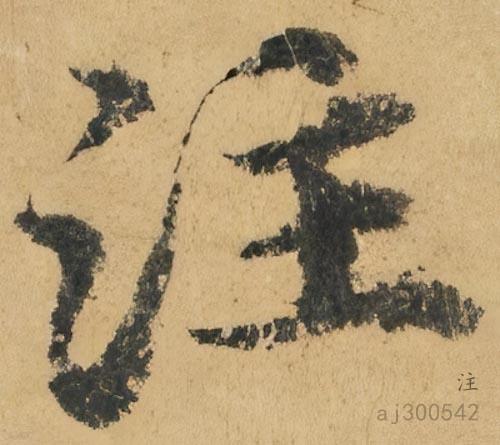 注
注
aj300542